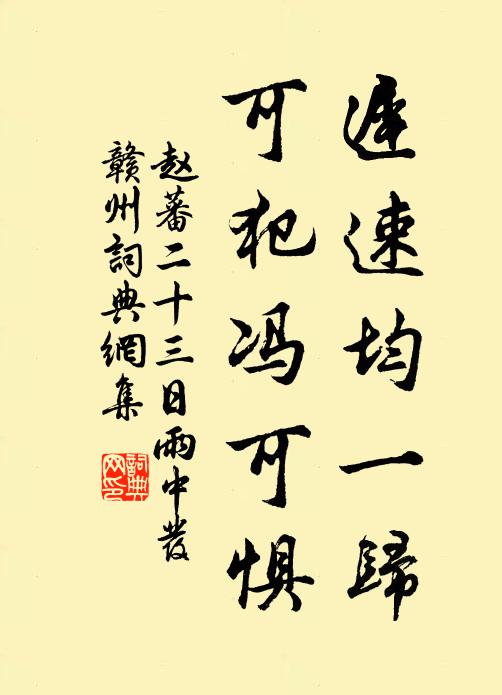 遲速均一歸
可犯冯可惧
赵蕃二十三日雨中發
贛州詞典網集
詞典
网印